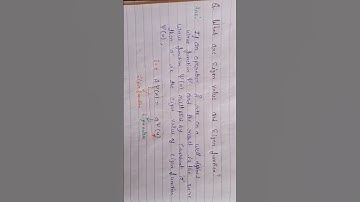 Q. What are Eigen value and Eigen function?
Ans: If an operator Â acts on a well define
wave function Ψ and the result is the same
wave function Ψ(x) multiplied by constant 'a'
then 'a' is the eigen value of eigen function
Ψ(x).
i.e Â Ψ(x) = a Ψ(x)
Eigen function
Eigen value